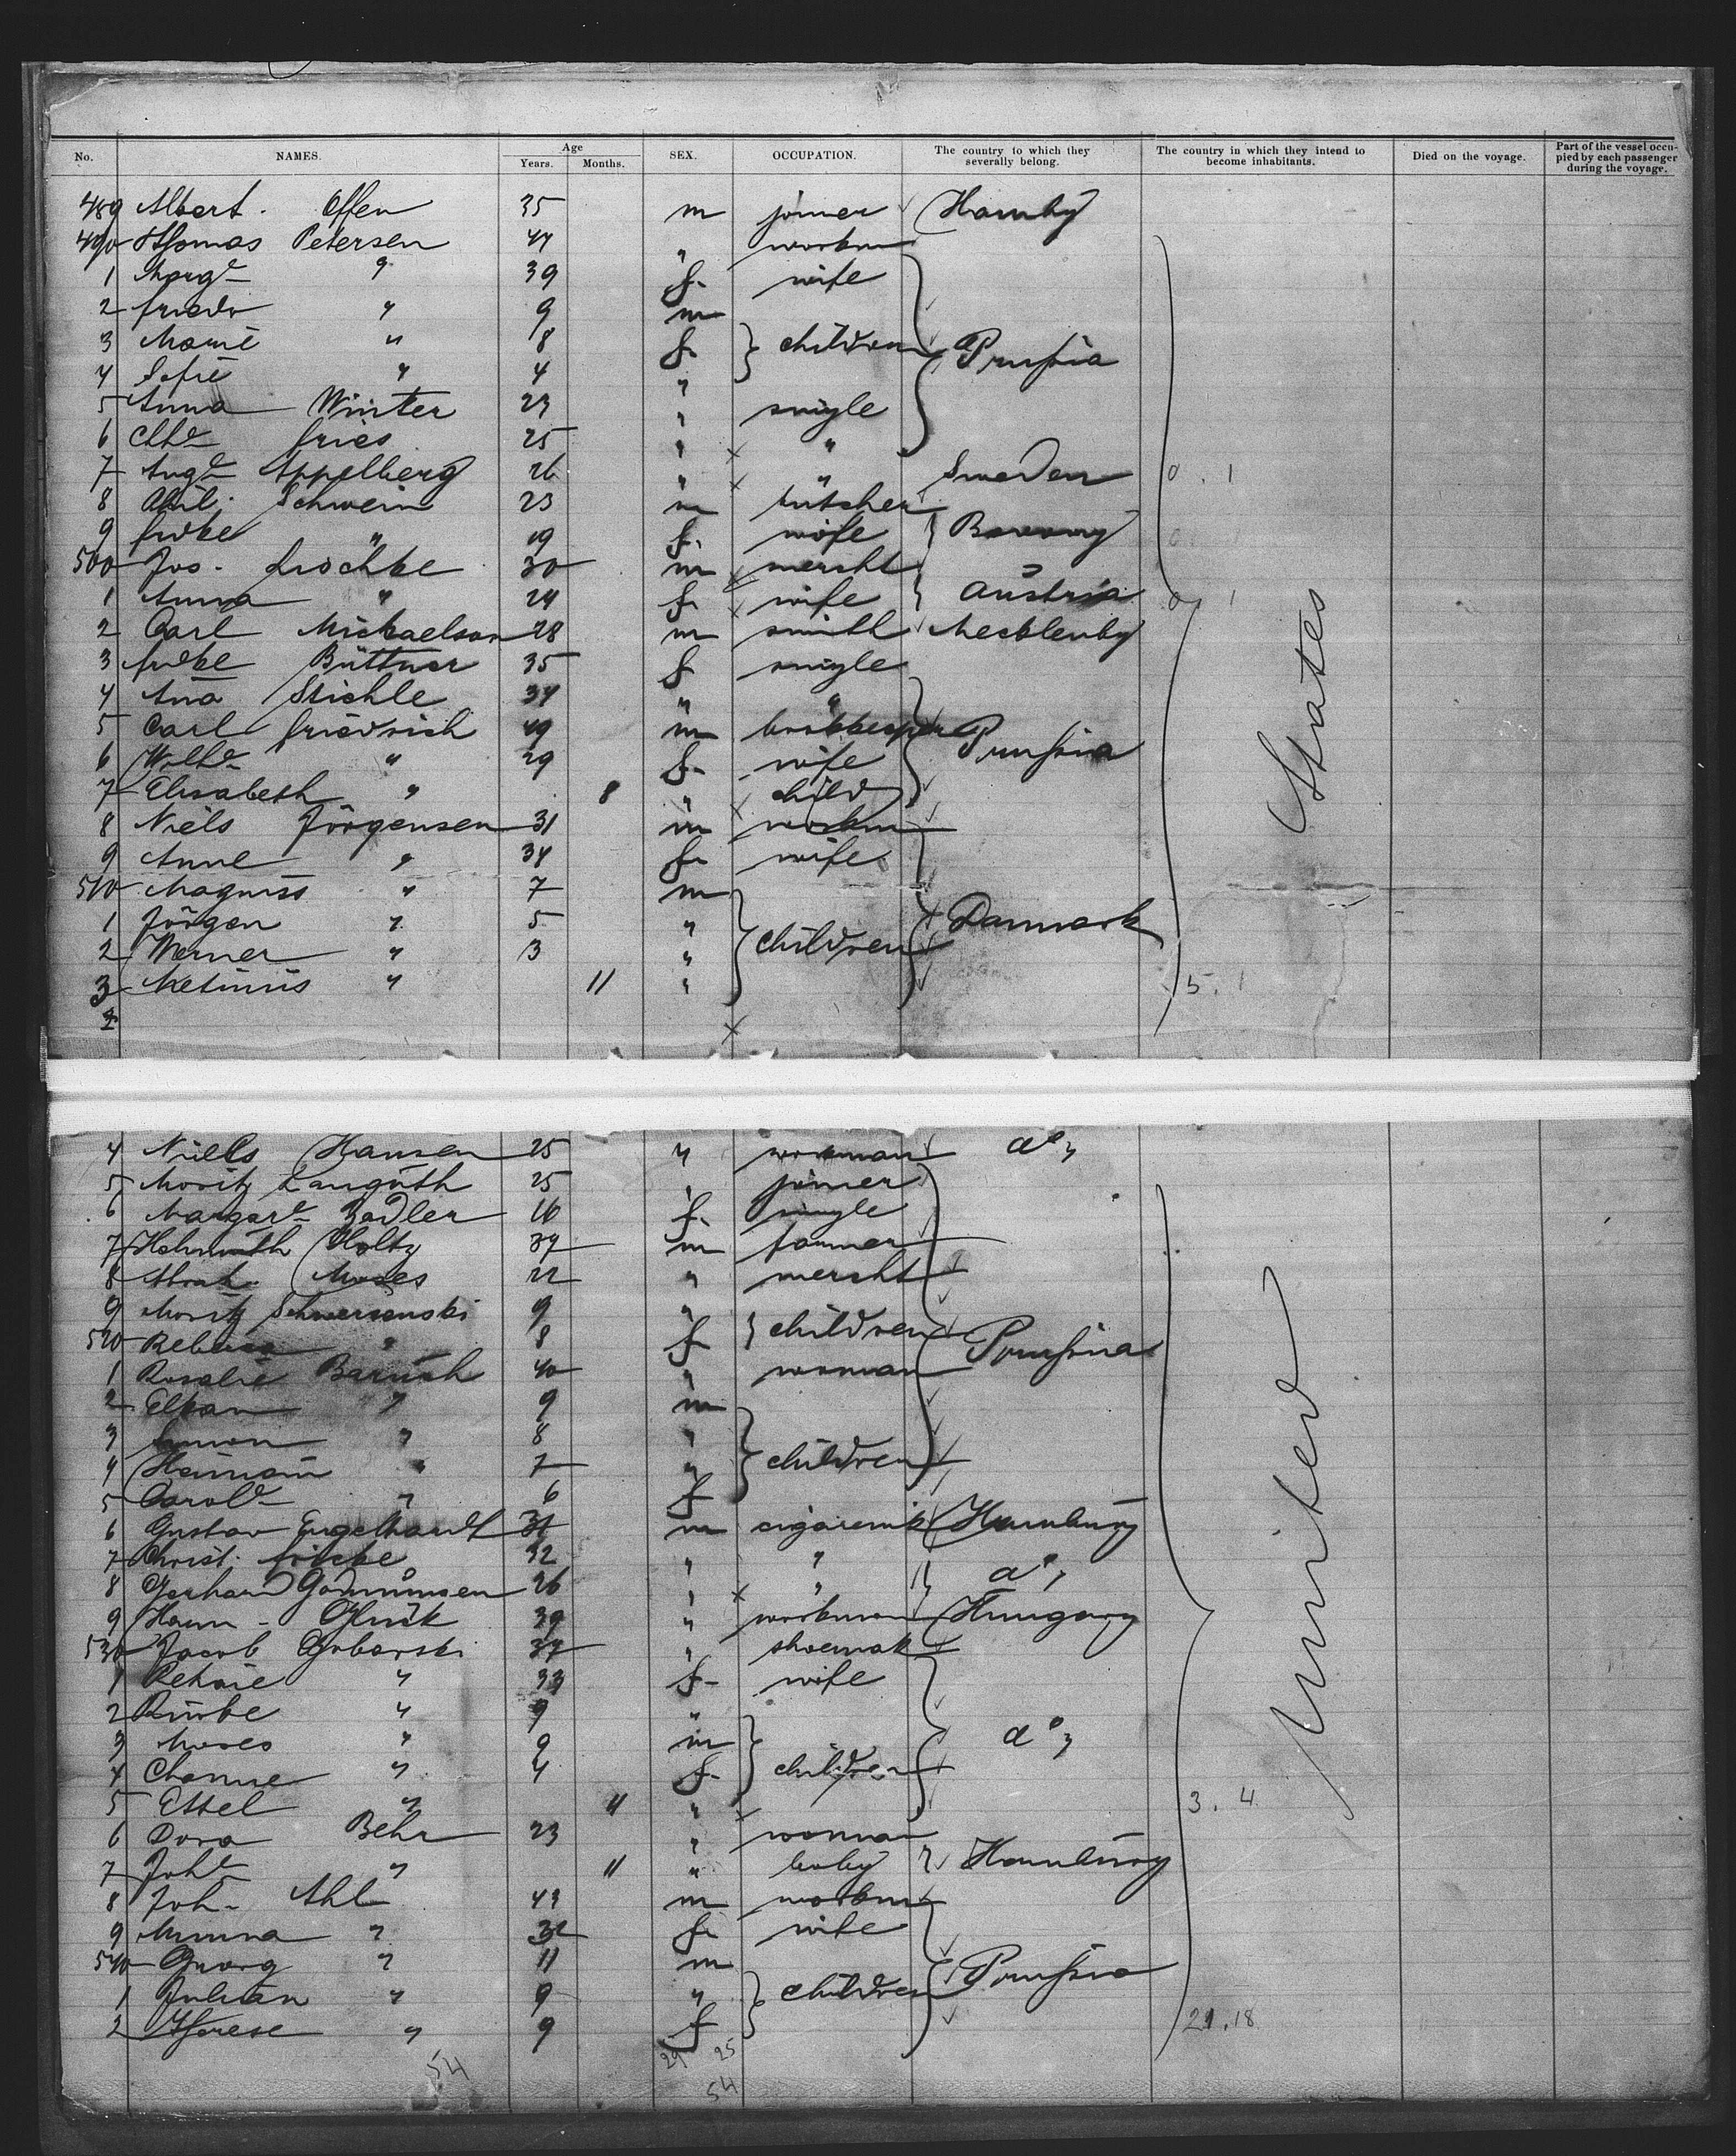 No. NAMES. Age Years. Months. SEX. OCCUPATION. The country to which they severally belong. The country in which they intend to become inhabitants. Died on the voyage. Part of the vessel occupied by each passenger during the voyage.
489 Albert Offen 35 m joiner Hambg
490 Thomas Petersen 44 " workm
1 Margr " 39 f. wife
2 friedr " 9 m
3 Marie " 8 f. children Prussia
4 Sofie " 4 "
5 Anna Winter 23 " single
6 fries 25 " "
7 Augte Appelberg 26 " " Sweden 0. 1
8 Schwein 23 m butcher
9 fridke " 19 f. wife
500 Jos. 30 m mercht
1 Anna " 24 f. wife Austria 0 1
2 Carl Michaelson 28 m smith Mecklenbg
3 fridke Büttner 35 f single
4 Ana Stichle 34 " "
5 Carl friedrich 49 m Prussia
6 " 29 f. wife
7 Elisabeth " 8 " child
8 Niels Jörgensen 31 m workm
9 Anne " 34 f. wife
510 Magnus " 7 m
1 Jörgen " 5 " Danmark
2 Werner " 3 " children
3 " 11 " 5. 1
States
4 Niels Hansen 25 " workman do
5 Moritz Languth 25 " joiner
6 Margare Zadler 16 f. single
7 Helmuth Holtz 37 m farmer
8 Abrah. Moses 22 " mercht
9 Moritz Schwersenski 9 "
520 Rebecca " 8 f children Prussia
1 Rosalie Baruch 40 " woman
2 Elkan " 9 m
3 Simon " 8 "
4 " 7 " children
5 Carole " 6 f
6 Gustav Engelhardt 31 m cigaremk Hamburg
7 Christ. fricke 32 " "
8 Gerhard 26 " " do
9 Glück 39 " workman Hungary
530 Jacob 37 " shoemak
1 " 33 f. wife
2 " 9 "
3 Moses " 9 m do
4 Channe " 4 f. children
5 Ettel " 11 " 3. 4
6 Dora Behr 23 " woman
7 Johe " 11 " baby Hamburg
8 Joh. Ahl 43 m workm
9 Minna " 32 f. wife
540 Georg " 11 m
1 Julian " 9 " children Prussia
2 Therese " 9 f 21. 18
United
54 29 25
54